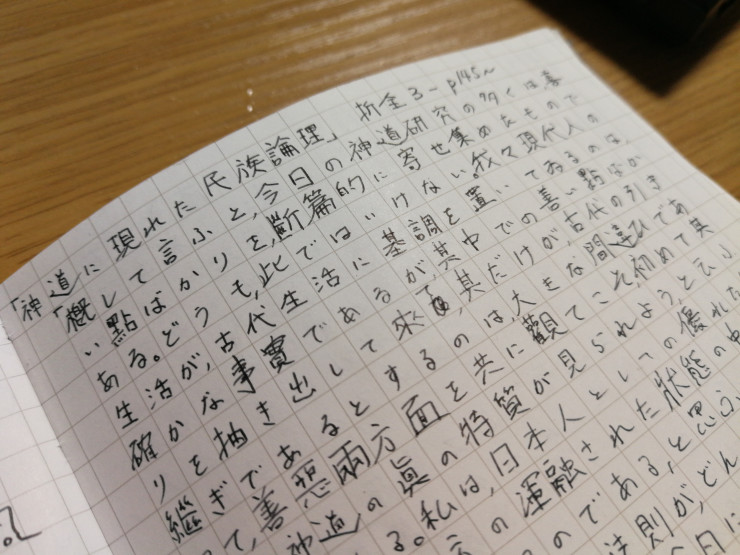 「神道に現れた民族論理」 折全3-p145~
「概して言ふと、今日の神道研究の多くは善
い點ばかりを、斷篇的に寄せ集めたもので
ある。どうも、此ではいけない。我々現代人の
生活が、古代生活に基調を置いてゐるのは、
確かな事實であるが其中での善い點ばか
りを抽き出して來て、其だけが、古代の引き
繼ぎであるとするのは、大きな間違ひであ
て、善惡兩方面を共に觀てこそ、初めて其
神道の眞の特質が見られよう、と云ふ
る。私は、日本人としての優れた
の渾融された状態の中
のである、と思ふ
法則が、どん